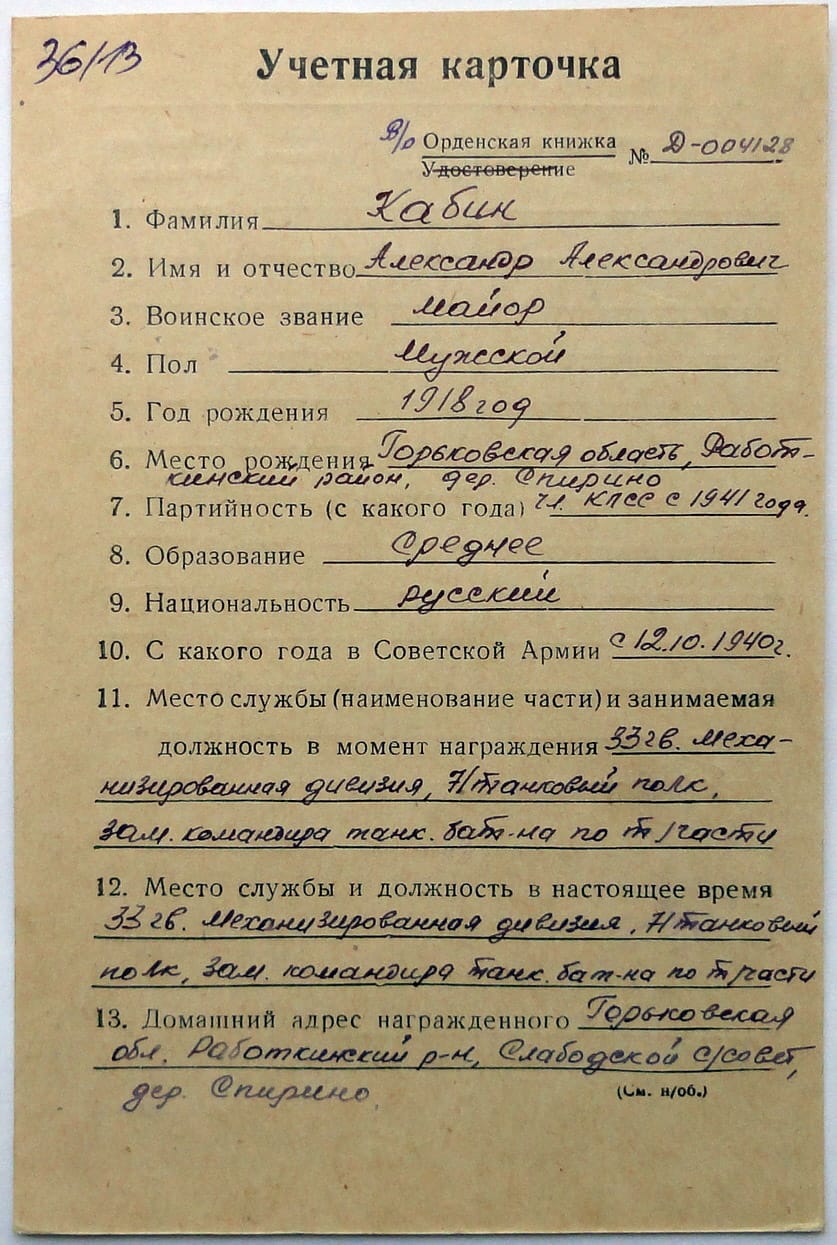 36/13
Учетная карточка
В/о Орденская книжка
Удостоверение № Д-004128
1. Фамилия Кабин
2. Имя и отчество Александр Александрович
3. Воинское звание майор
4. Пол Мужской
5. Год рождения 1918 год
6. Место рождения Горьковская область, Работ-
кинский район, дер. Спирино
7. Партийность (с какого года) чл. КПСС с 1941 года.
8. Образование Среднее
9. Национальность русский
10. С какого года в Советской Армии с 12.10.1940г.
11. Место службы (наименование части) и занимаемая
должность в момент награждения 33 гв. Меха-
низированная дивизия, 71 танковый полк,
зам. командира танк. бат-на по т/части
12. Место службы и должность в настоящее время
33 гв. Механизированная дивизия, 71 танковый
полк, зам. командира танк. бат-на по т/части
13. Домашний адрес награжденного Горьковская
обл. Работкинский р-н, Слабодской с/совет,
дер. Спирино
(См. н/об.)